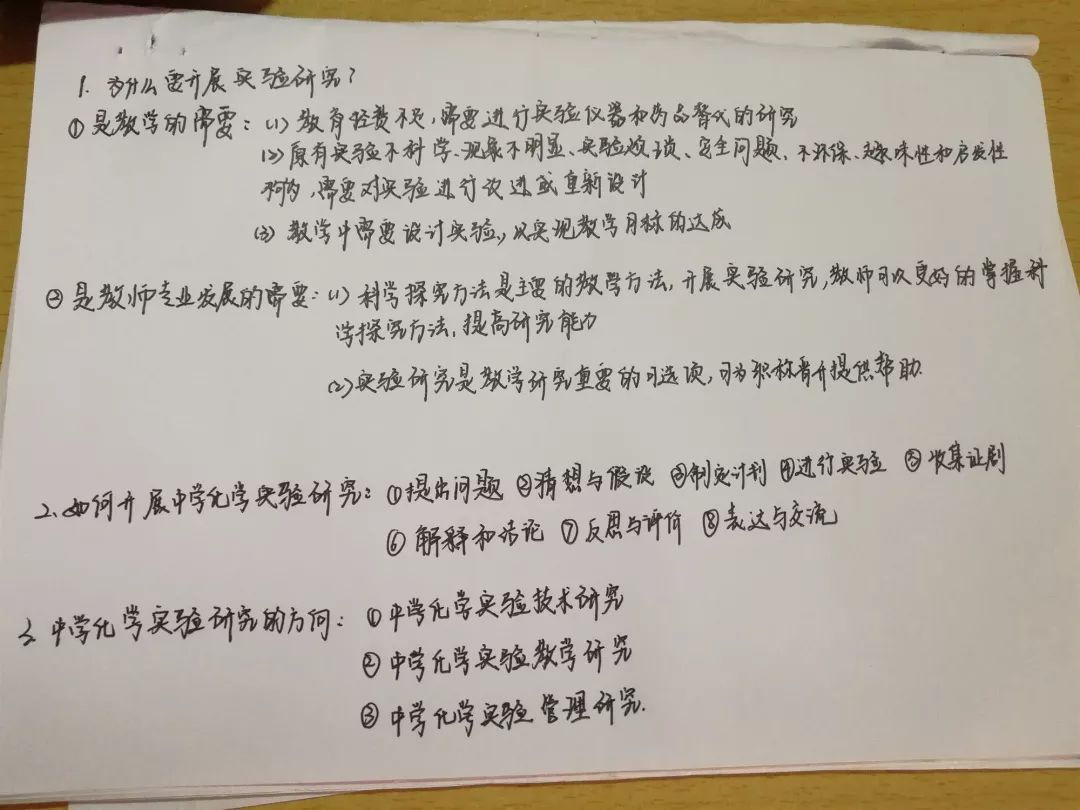 1. 为什么要开展实验研究？
①是教学的需要：(1) 教育经费不足，需要进行实验仪器和药品替代的研究
(2) 原有实验不科学、现象不明显、实验效、安全问题、不环保、趣味性和启发性
不够，需要对实验进行改进或重新设计
(3) 教学中需要设计实验，以实现教学目标的达成
②是教师专业发展的需要：(1) 科学探究方法是主要的教学方法，开展实验研究，教师可以更好的掌握科
学探究方法，提高研究能力
(2) 实验研究是教学研究重要的可选项，可为职称晋升提供帮助.
2. 如何开展中学化学实验研究：①提出问题 ②猜想与假设 ③制定计划 ④进行实验 ⑤收集证据
⑥解释和结论 ⑦反思与评价 ⑧表达与交流
3. 中学化学实验研究的方向：①中学化学实验技术研究
②中学化学实验教学研究
③中学化学实验管理研究.